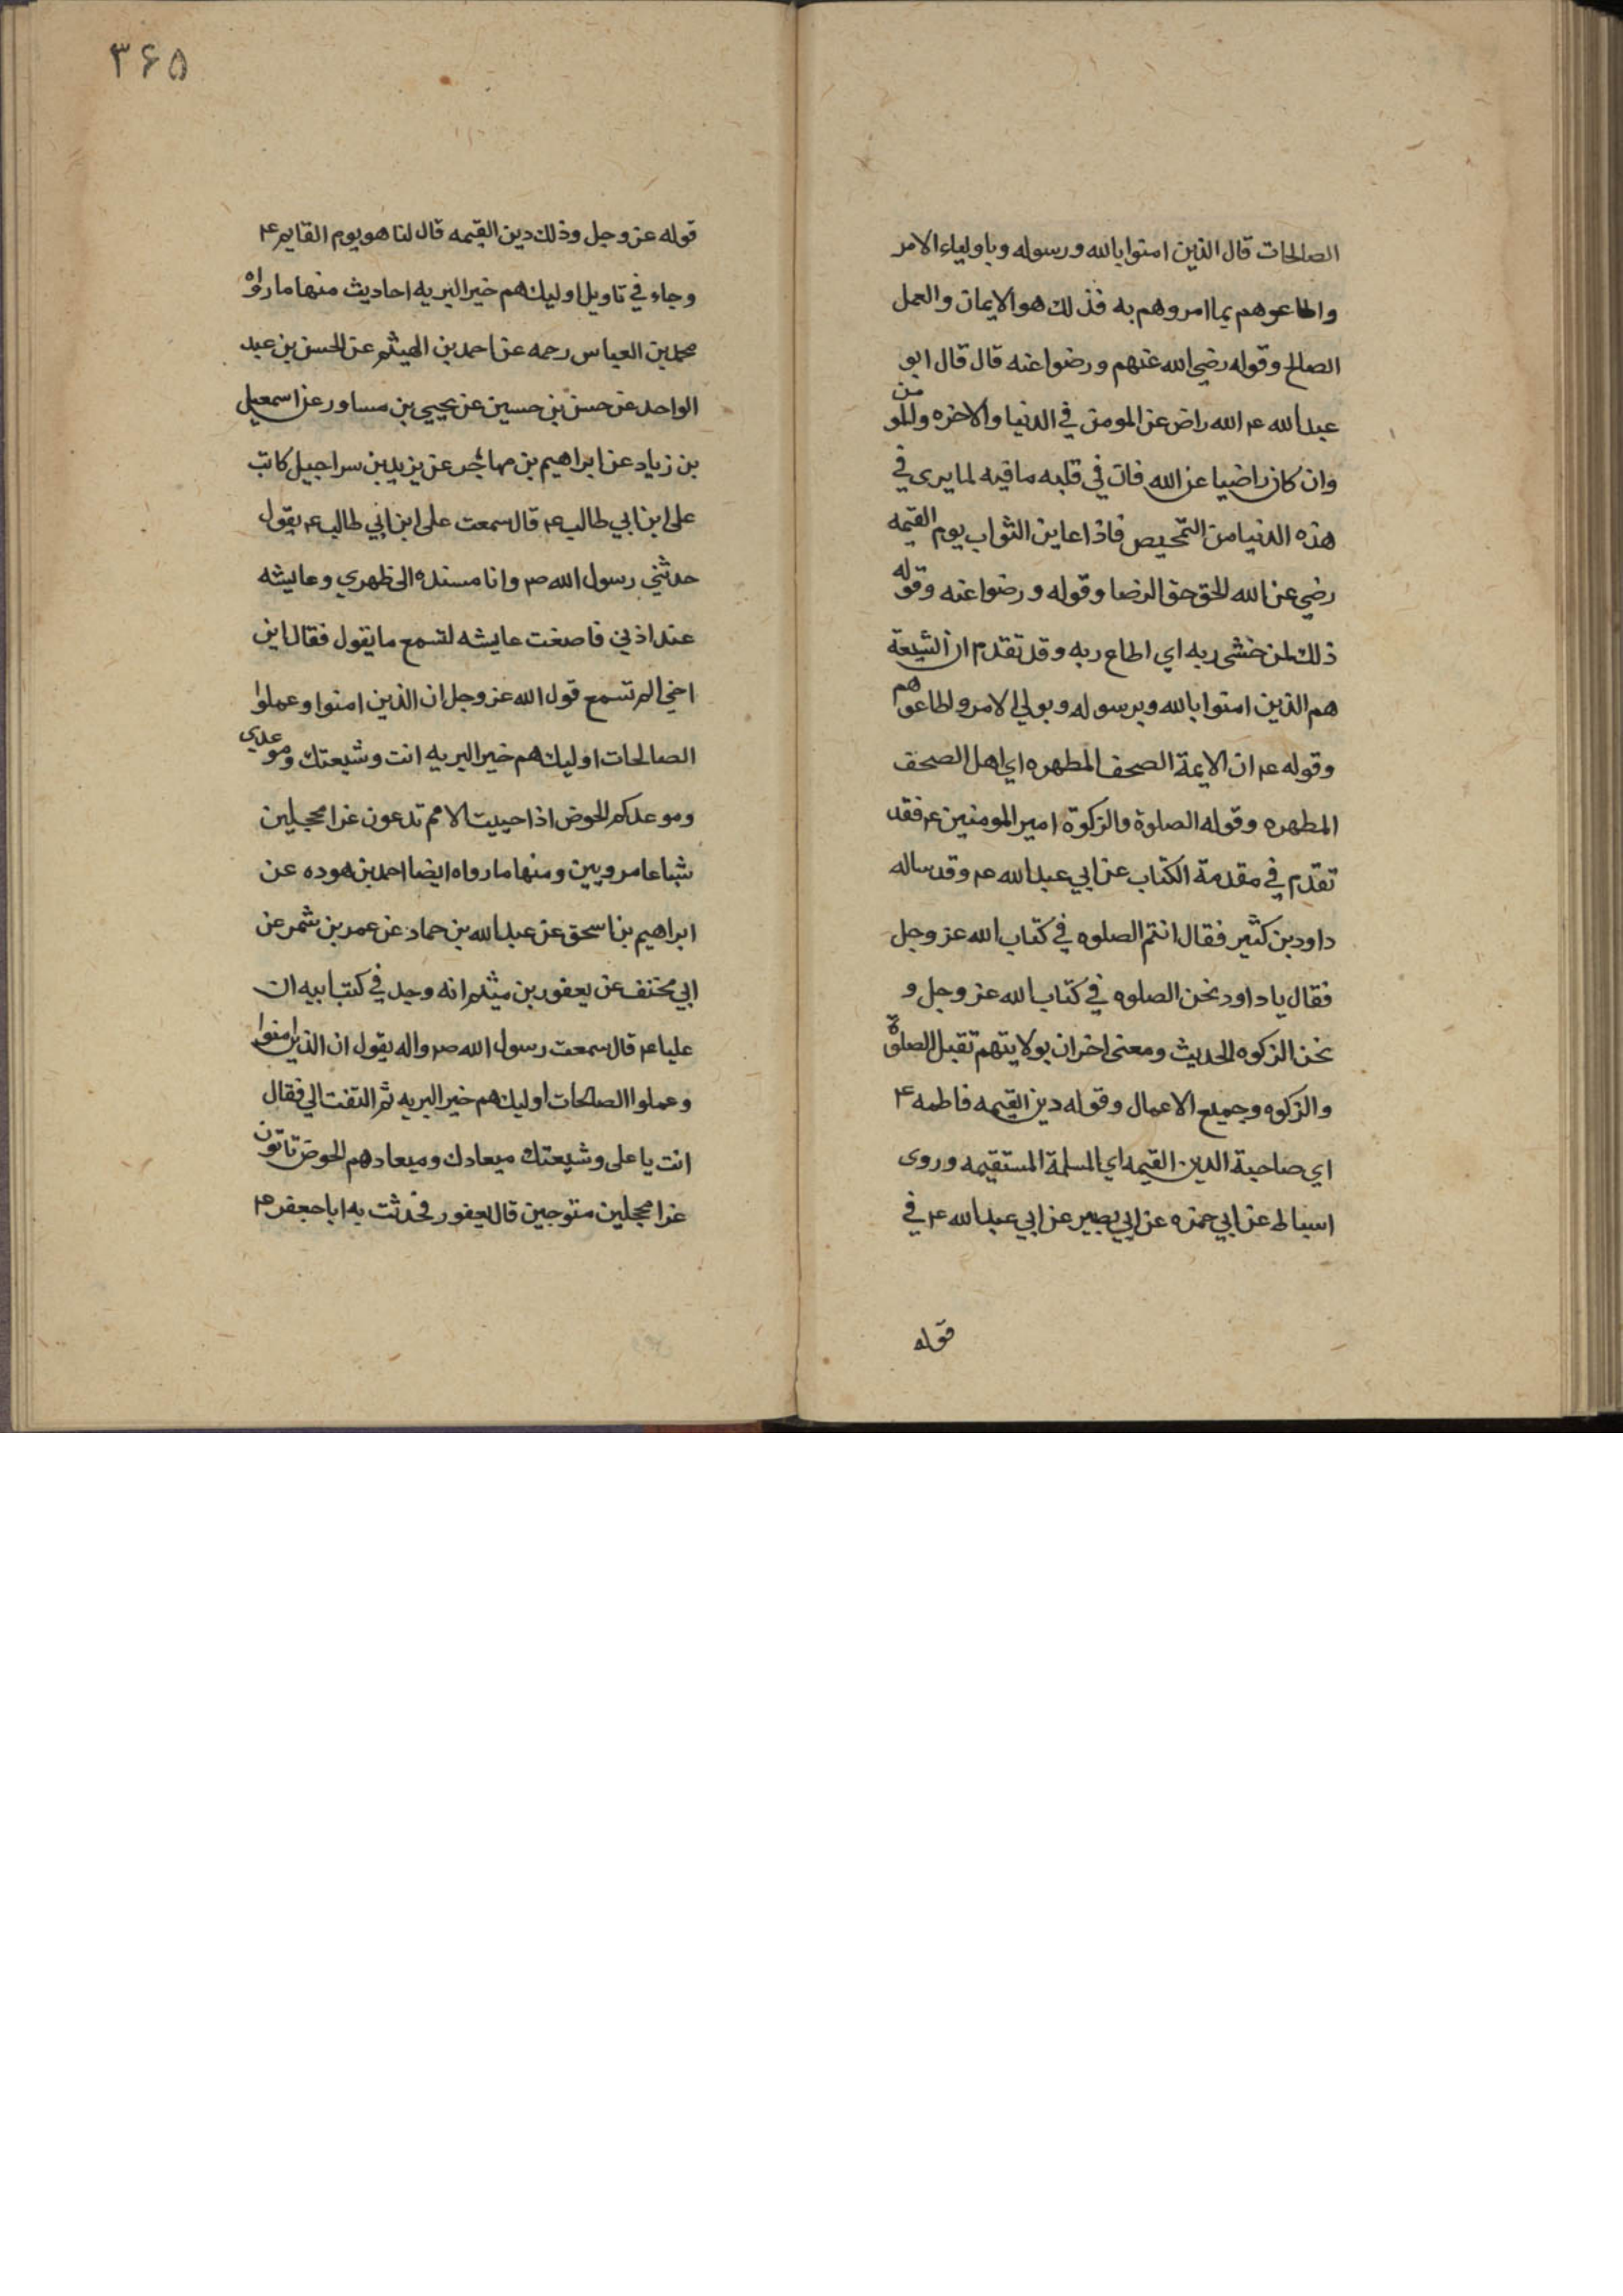 الصالحات قال الذين امنوا بالله ورسوله وباولياء الامر
واطاعوهم بما امروهم به فذلك هو الايمان والعمل
الصالح وقوله رضي الله عنهم ورضوا عنه قال قال ابو
عبد الله ع الله راض عن المومن في الدنيا والاخره والمومن
وان كان راضيا عن الله فان في قلبه ما فيه لما يرى في
هذه الدنيا من التمحيص فاذا عاين الثواب يوم القيمه
رضي عن الله الحق حق الرضا وقوله ورضوا عنه وقوله
ذلك لمن خشى ربه اي اطاع ربه وقد تقدم ان الشيعة
هم الذين امنوا بالله وبرسوله وبولي الامر واطاعوهم
وقوله ع ان الايمة الصحف المطهره اي اهل الصحف
المطهره وقوله الصلوة والزكوة امير المومنين ع فقد
تقدم في مقدمة الكتاب عن ابي عبد الله ع وقد ساله
داود بن كثير فقال انتم الصلوه في كتاب الله عز وجل
فقال يا داود نحن الصلوه في كتاب الله عز وجل و
نحن الزكوه الحديث ومعنى اخر ان بولايتهم تقبل الصلوة
والزكوه وجميع الاعمال وقوله دين القيمه فاطمه ع
اي صاحبة الدين القيمه اي المسلمة المستقيمه وروى
اسباط عن ابي حمزه عن ابي بصير عن ابي عبد الله ع في
قوله
۳۶۵
قوله عز وجل وذلك دين القيمه قال لنا هو يوم القايم ع
وجاء في تاويل اوليك هم خير البريه احاديث منها ما رواه
محمد بن العباس رحمه عن احمد بن الهيثم عن الحسن بن عبد
الواحد عن حسن بن حسين عن يحيي بن مساور عن اسمعيل
بن زياد عن ابراهيم بن مهاجر عن يزيد بن سراجيل كاتب
على ابن ابي طالب ع قال سمعت على ابن ابي طالب ع يقول
حدثني رسول الله ص وانا مسنده الى ظهري وعايشه
عند اذني فاصغت عايشه لتسمع ما يقول فقال اين
اخي الم تسمع قول الله عز وجل ان الذين امنوا وعملوا
الصالحات اوليك هم خير البريه انت وشيعتك وموعدي
وموعدكم الحوض اذا حييت الامم تدعون غرا محجلين
شباعا مرويين ومنها ما رواه ايضا احمد بن هوده عن
ابراهيم بن اسحق عن عبد الله بن حماد عن عمر بن شمر عن
ابي مخنف عن يعفور بن ميثم انه وجد في كتب ابيه ان
عليا ع قال سمعت رسول الله ص واله يقول ان الذين امنوا
وعملوا الصالحات اوليك هم خير البريه ثم التفت الي فقال
انت يا على وشيعتك ميعادك وميعادهم الحوض تاتون
غرا محجلين متوجين قال يعفور فحدثت به ابا جعفر ع